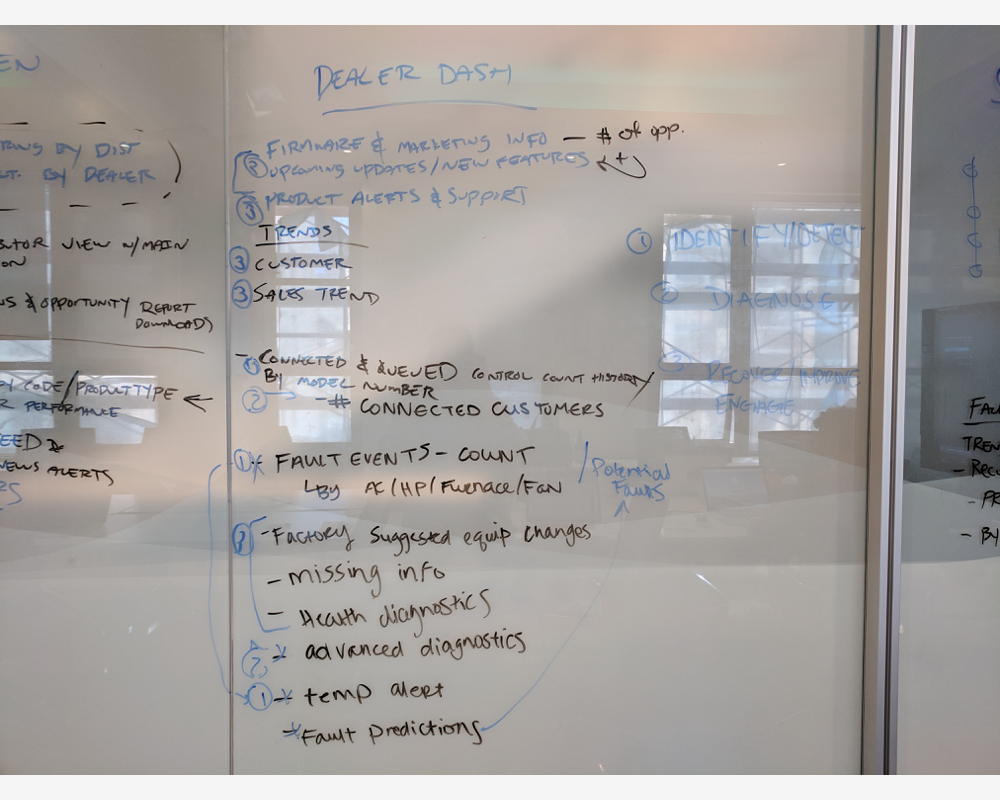 EN
DEALER DASH
BY DIST
BY DEALER
VIEW W/MAIN
ON
& OPPORTUNITY REPORT
DOWNLOADS
CODE/PRODUCT TYPE
PERFORMANCE
EED &
NEWS ALERTS
RS
FIRMWARE & MARKETING INFO — # of opp.
② UPCOMING UPDATES/NEW FEATURES +
③ PRODUCT ALERTS & SUPPORT
TRENDS
③ CUSTOMER
③ SALES TREND
① - CONNECTED & QUEUED CONTROL COUNT HISTORY/
BY MODEL NUMBER
② → - # CONNECTED CUSTOMERS
① * FAULT EVENTS - COUNT / Potential
Faults
↳ BY AC/HP/Furnace/Fan
② - FACTORY Suggested equip changes
- missing info
- Health diagnostics
② * advanced diagnostics
① * temp alert
* Fault predictions
① IDENTIFY/DETECT
② DIAGNOSE
③ RECOVER/IMPROVE
ENGAGE
FAU
TREN
- RECO
- PR
- BY